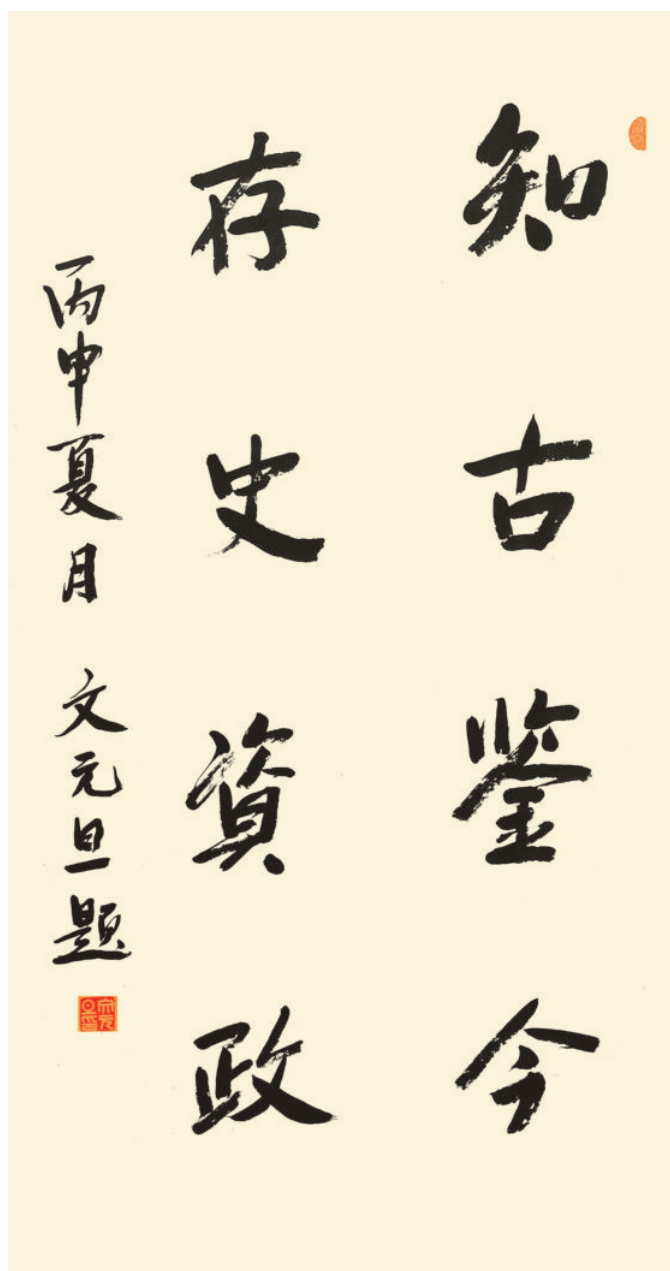 知古鉴今
存史資政
丙申夏月 文元旦題